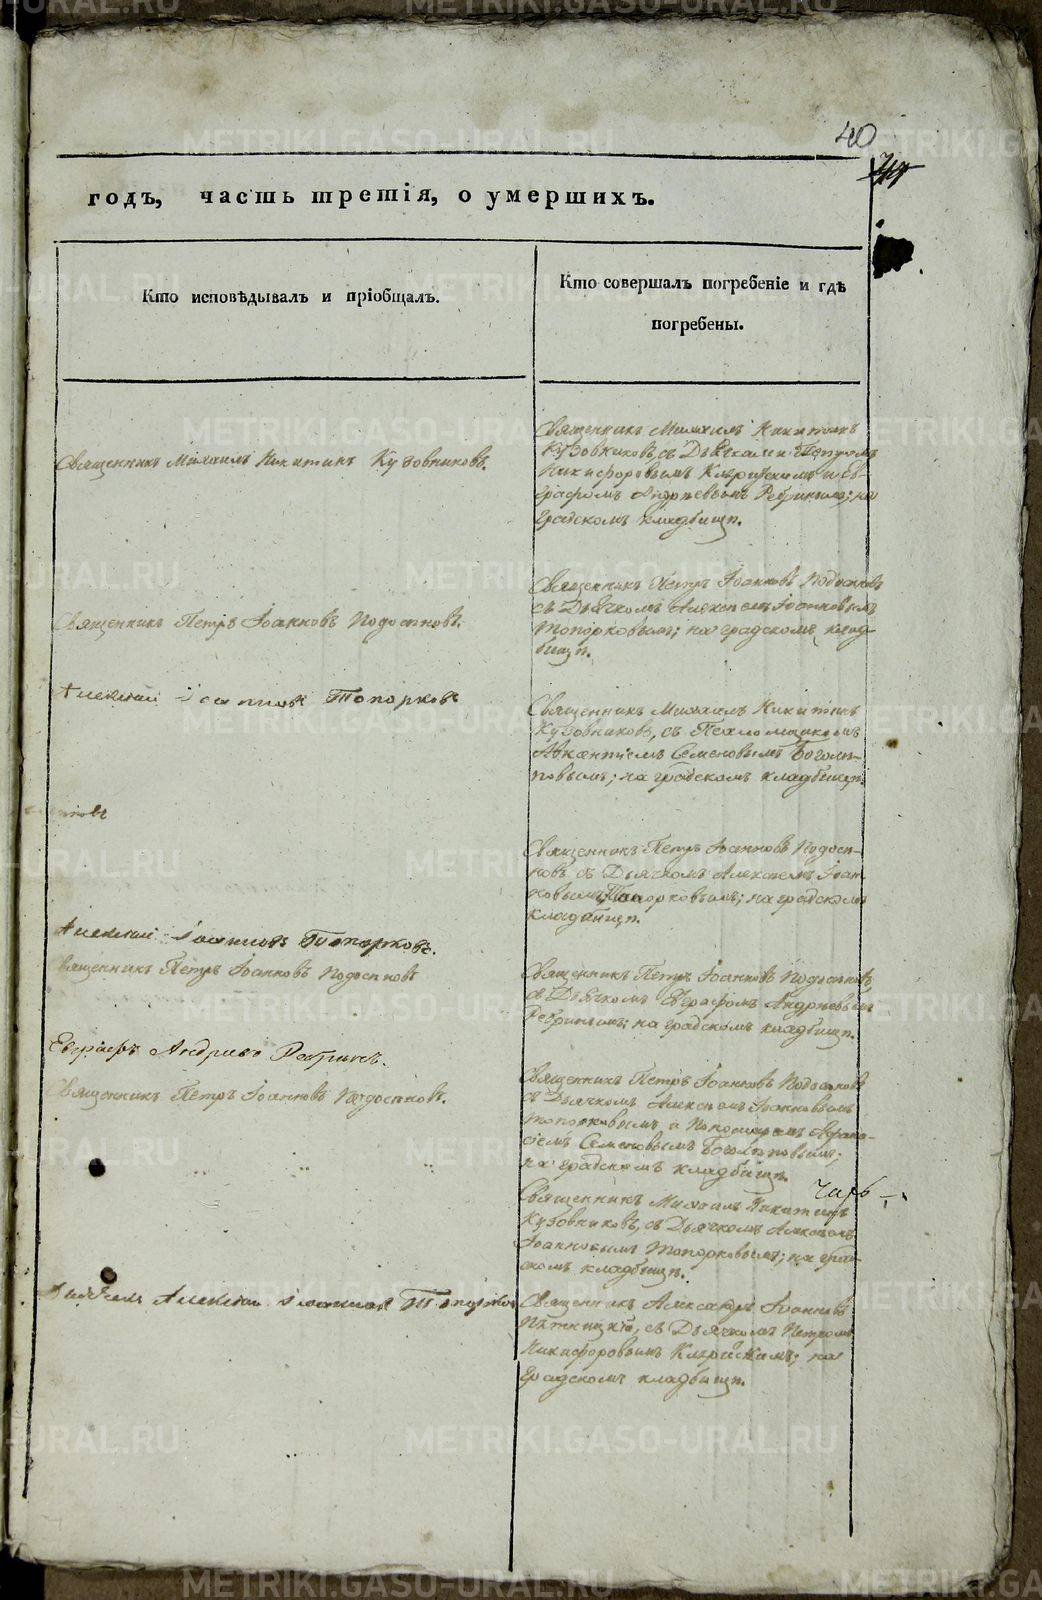 40
годъ, часть третія, о умершихъ.
Кто исповѣдывалъ и пріобщалъ.
Кто совершалъ погребеніе и гдѣ
погребены.
Священникъ Михаилъ Никитинъ Кузовниковъ.
Священникъ Михаилъ Никитинъ
Кузовниковъ, съ Дьячками Петромъ
Никифоровымъ и Ев-
графомъ Андреевымъ на
градскомъ кладбищѣ.
Священникъ Петръ Іоанновъ Подосеновъ.
Священникъ Петръ Іоанновъ Подосеновъ
съ Дьячкомъ Алексѣемъ Іоанновымъ
Топорковымъ; на градскомъ клад-
бищѣ.
Алексѣй Іоанновъ Топорковъ
Священникъ Михаилъ Никитинъ
Кузовниковъ, съ Пономаремъ
Семеновымъ Боголѣ-
повымъ; на градскомъ кладбищѣ.
Священникъ Петръ Іоанновъ Подосе-
новъ съ Дьячкомъ Алексѣемъ Іоан-
новымъ Топорковымъ; на градскомъ
кладбищѣ.
Алексѣй Іоанновъ Топорковъ.
Священникъ Петръ Іоанновъ Подосеновъ
Священникъ Петръ Іоанновъ Подосеновъ,
съ Дьячкомъ Евграфомъ Андреевымъ
на градскомъ кладбищѣ.
Евграфъ Андреевъ
Священникъ Петръ Іоанновъ Подосеновъ.
Священникъ Петръ Іоанновъ Подосеновъ
съ Дьячкомъ Алексѣемъ Іоанновымъ
Топорковымъ и Пономаремъ
Семеновымъ Боголѣповымъ;
на градскомъ кладбищѣ.
Священникъ Михаилъ Никитинъ
Кузовниковъ, съ Дьячкомъ Алексѣемъ
Іоанновымъ Топорковымъ; на град-
скомъ кладбищѣ.
Алексѣй Іоанновъ Топорковъ
Священникъ Александръ Іоанновъ
съ Дьячкомъ Петромъ
Никифоровымъ на
градскомъ кладбищѣ.